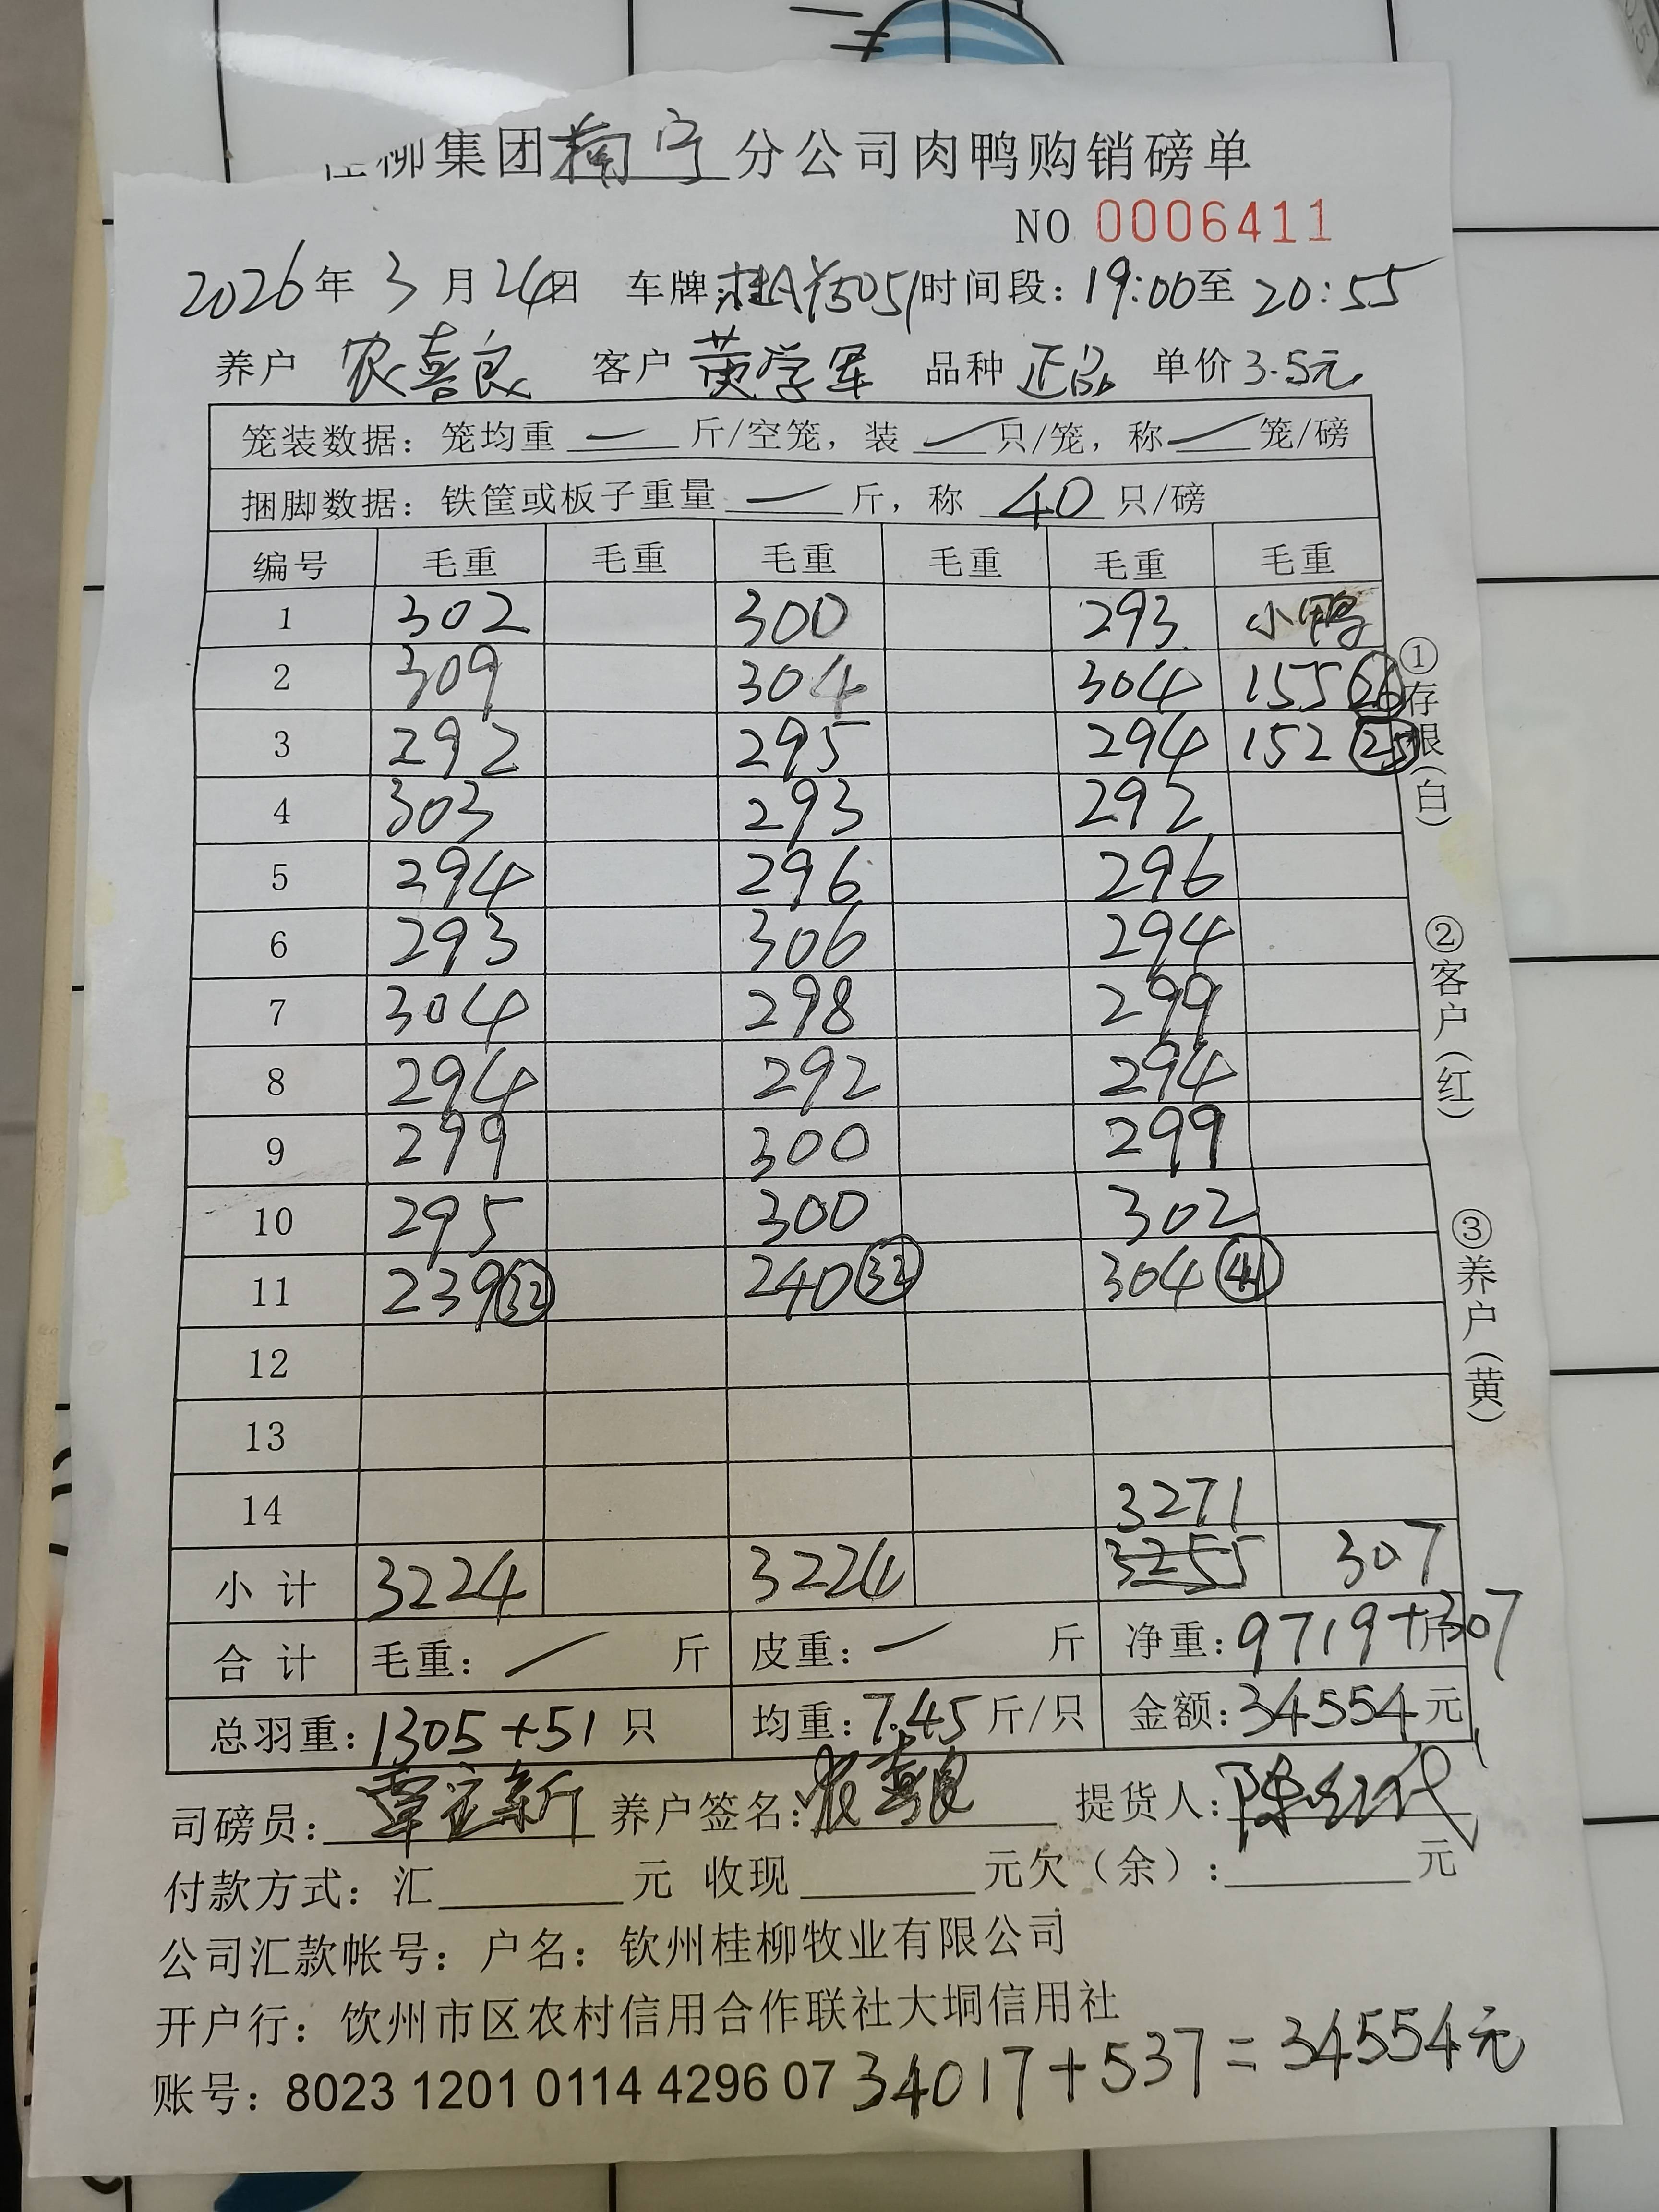 柳集团南宁分公司肉鸭购销磅单
NO 0006411
2026年3月24日 车牌:桂AY5051时间段：19:00至20:55
养户 农喜良 客户 黄学军 品种 正品 单价3.5元
笼装数据：笼均重 一 斤/空笼，装 一 只/笼，称 一 笼/磅
捆脚数据：铁筐或板子重量 一 斤，称 40 只/磅
编号 毛重 毛重 毛重 毛重 毛重 毛重
1 302 300 293 小鸭
2 309 304 304 155 26
3 292 295 294 152 25
4 303 293 292
5 294 296 296
6 293 306 294
7 304 298 299
8 294 292 294
9 299 300 299
10 295 300 302
11 239 32 240 33 304 41
12
13
14 3271
小计 3224 3224 3255 307
合计 毛重：一 斤 皮重：一 斤 净重：9719+307斤
总羽重：1305+51只 均重：7.45斤/只 金额：34554元
司磅员： 养户签名：农喜良 提货人：
付款方式：汇 元 收现 元欠（余）： 元
公司汇款帐号：户名：钦州桂柳牧业有限公司
开户行：钦州市区农村信用合作联社大垌信用社
账号：8023 1201 0114 4296 07 34017+537=34554元
①存根(白)
②客户(红)
③养户(黄)